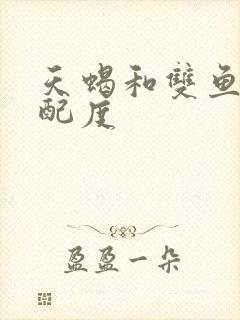 天蝎和雙魚
配度
盈盈一朵